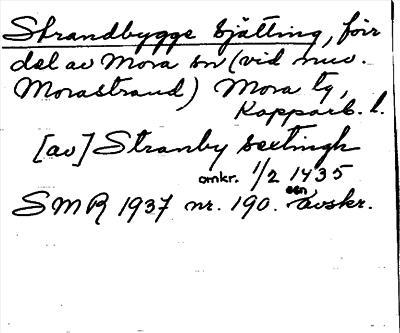 Strandbygge bjätting, förr
del av Mora sn (vid nuv.
Morastrand) Mora tg,
Kopparb. l.
[av] Stranby sextingh
omkr. 1/2 1435
SMR 1937 nr. 190. sen avskr.